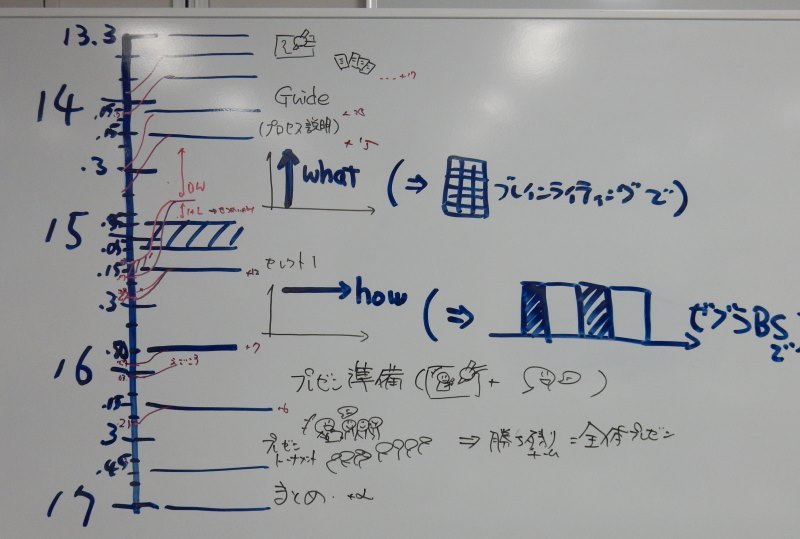 13.3
14
Guide
.15
(プロセス説明)
+15
.3
what
(⇒ ブレインライティングで)
DW
15
.05
.15
セレクト1
+12
.3
how
(⇒ ゼブラBSで
.50
+7
16
プレゼン準備 ( + )
.15
+6
.3
プレゼン
トーナメント
⇒ 勝ち残り = 全体プレゼン
チーム
.45
まとめ. +α
17